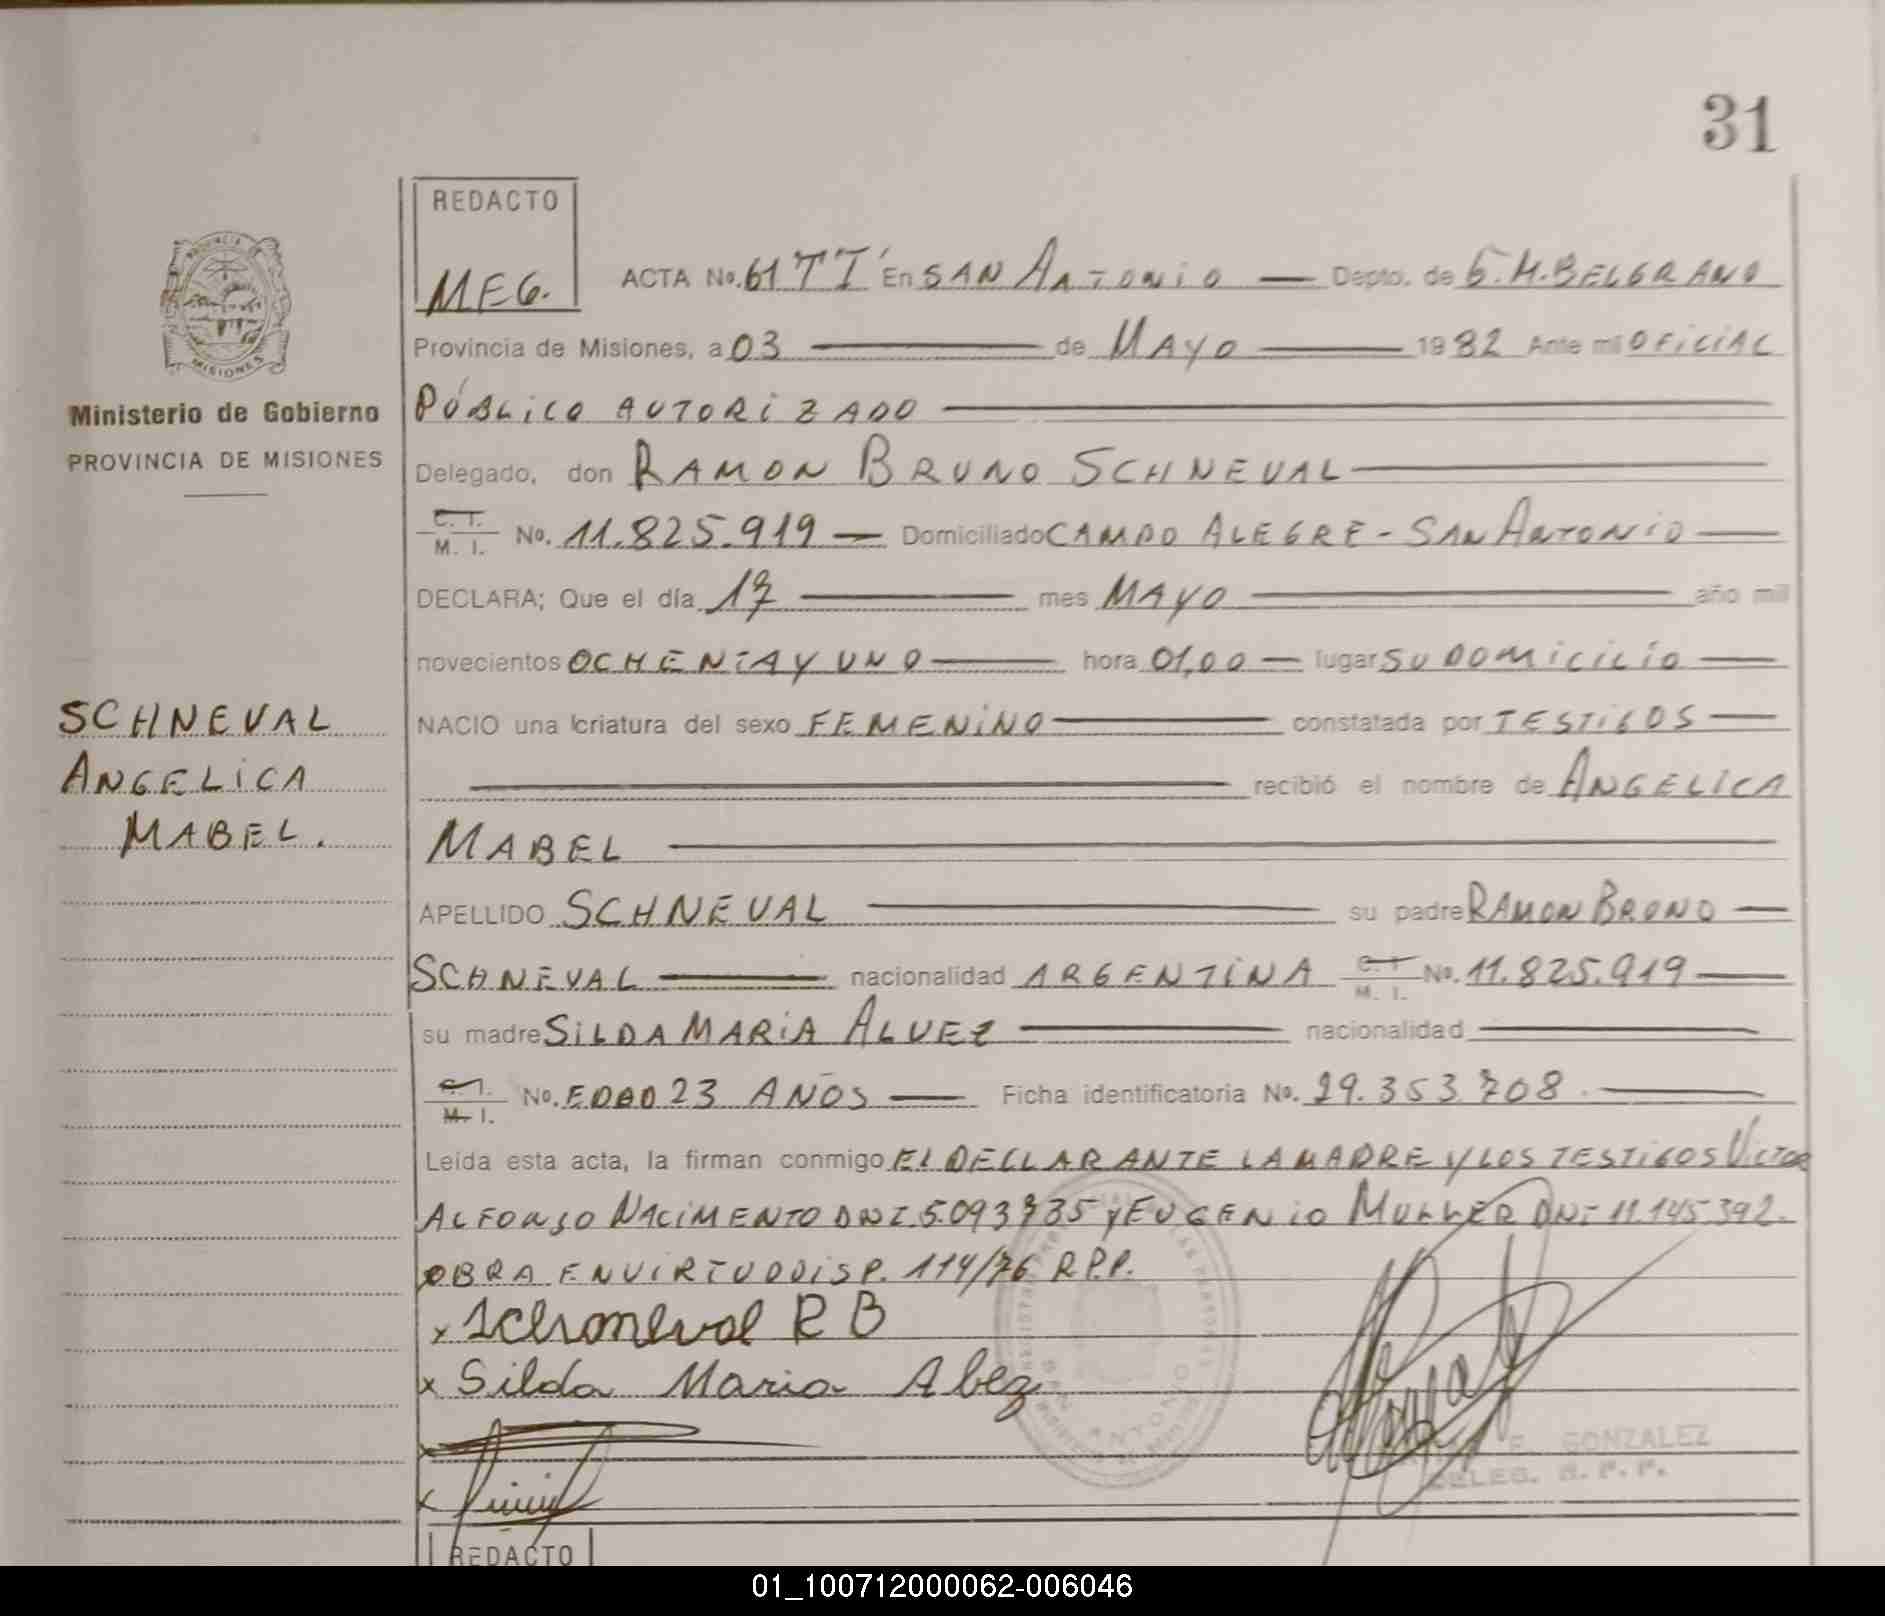 31
REDACTO
MEG.
ACTA No. 61 TT En SAN ANTONIO — Depto. de G.M. BELGRANO
Provincia de Misiones, a 03 — de MAYO — 1982 Ante mi OFICIAL
PÚBLICO AUTORIZADO —
Delegado, don RAMON BRUNO SCHNEVAL —
C. I.
M. I. No. 11.825.919 — Domiciliado CAMPO ALEGRE - SAN ANTONIO —
DECLARA; Que el día 17 — mes MAYO — año mil
novecientos OCHENTA Y UNO — hora 01,00 — lugar SU DOMICILIO —
NACIO una criatura del sexo FEMENINO — constatada por TESTIGOS —
— recibió el nombre de ANGELICA
MABEL —
APELLIDO SCHNEVAL — su padre RAMON BRUNO —
SCHNEVAL — nacionalidad ARGENTINA C. I. M. I. No. 11.825.919 —
su madre SILDA MARIA ALVEZ — nacionalidad —
C. I.
M. I. No. EDAD 23 AÑOS — Ficha identificatoria No. 29.353.708 —
Leída esta acta, la firman conmigo EL DECLARANTE LA MADRE Y LOS TESTIGOS VICTOR
ALFONSO NACIMENTO DNI 5.093735 y EUGENIO MULLER DNI 11.145.392.
OBRA EN VIRTUD DISP. 114/76 R.P.P.
x Schoneval R B
x Silda Maria Albez
x
x
SAN ANTONIO
E. GONZALEZ
DELEG. R. P. P.
PROVINCIA DE
MISIONES
Ministerio de Gobierno
PROVINCIA DE MISIONES
SCHNEVAL
ANGELICA
MABEL.
REDACTO
01_100712000062-006046